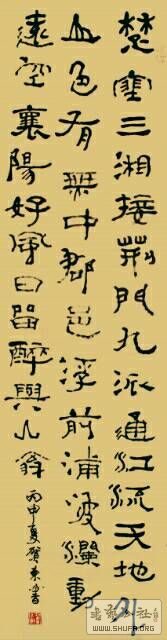 楚塞三湘接荊門九派通江流天地外
山色有無中郡邑浮前浦波瀾動
遠空襄陽好風日留醉與山翁
丙申夏
WWW.SHUFA.ORG